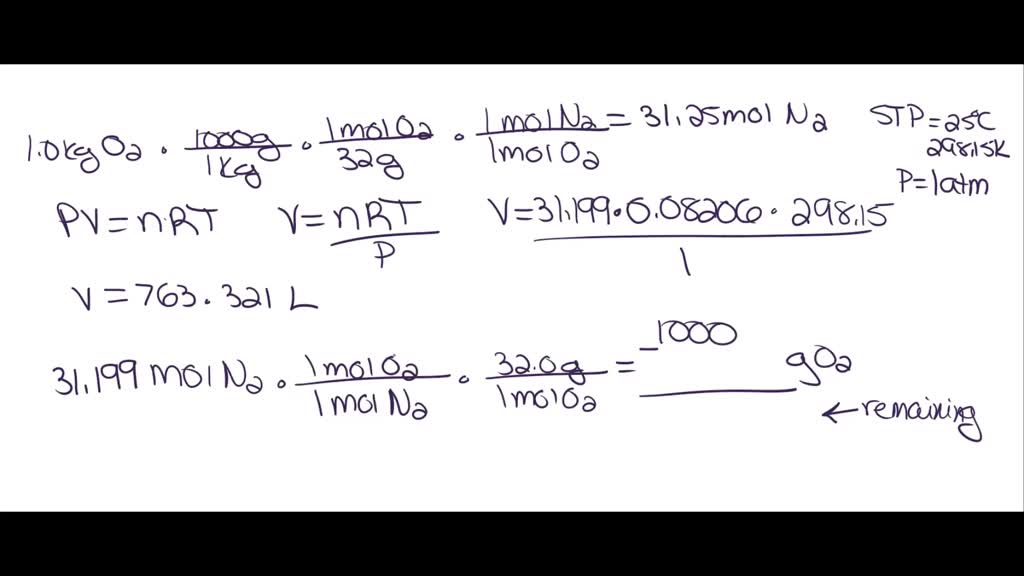 1.0kg O2 · 1000g/1kg · 1molO2/32g · 1molN2/1molO2 = 31.25mol N2
STP=25C
298.15K
P=1atm
PV=nRT V=nRT/P V=31.199·0.08206·298.15/1
V=763.321 L
31.199 mol N2 · 1molO2/1molN2 · 32.0g/1molO2 = -1000 gO2
←remaining